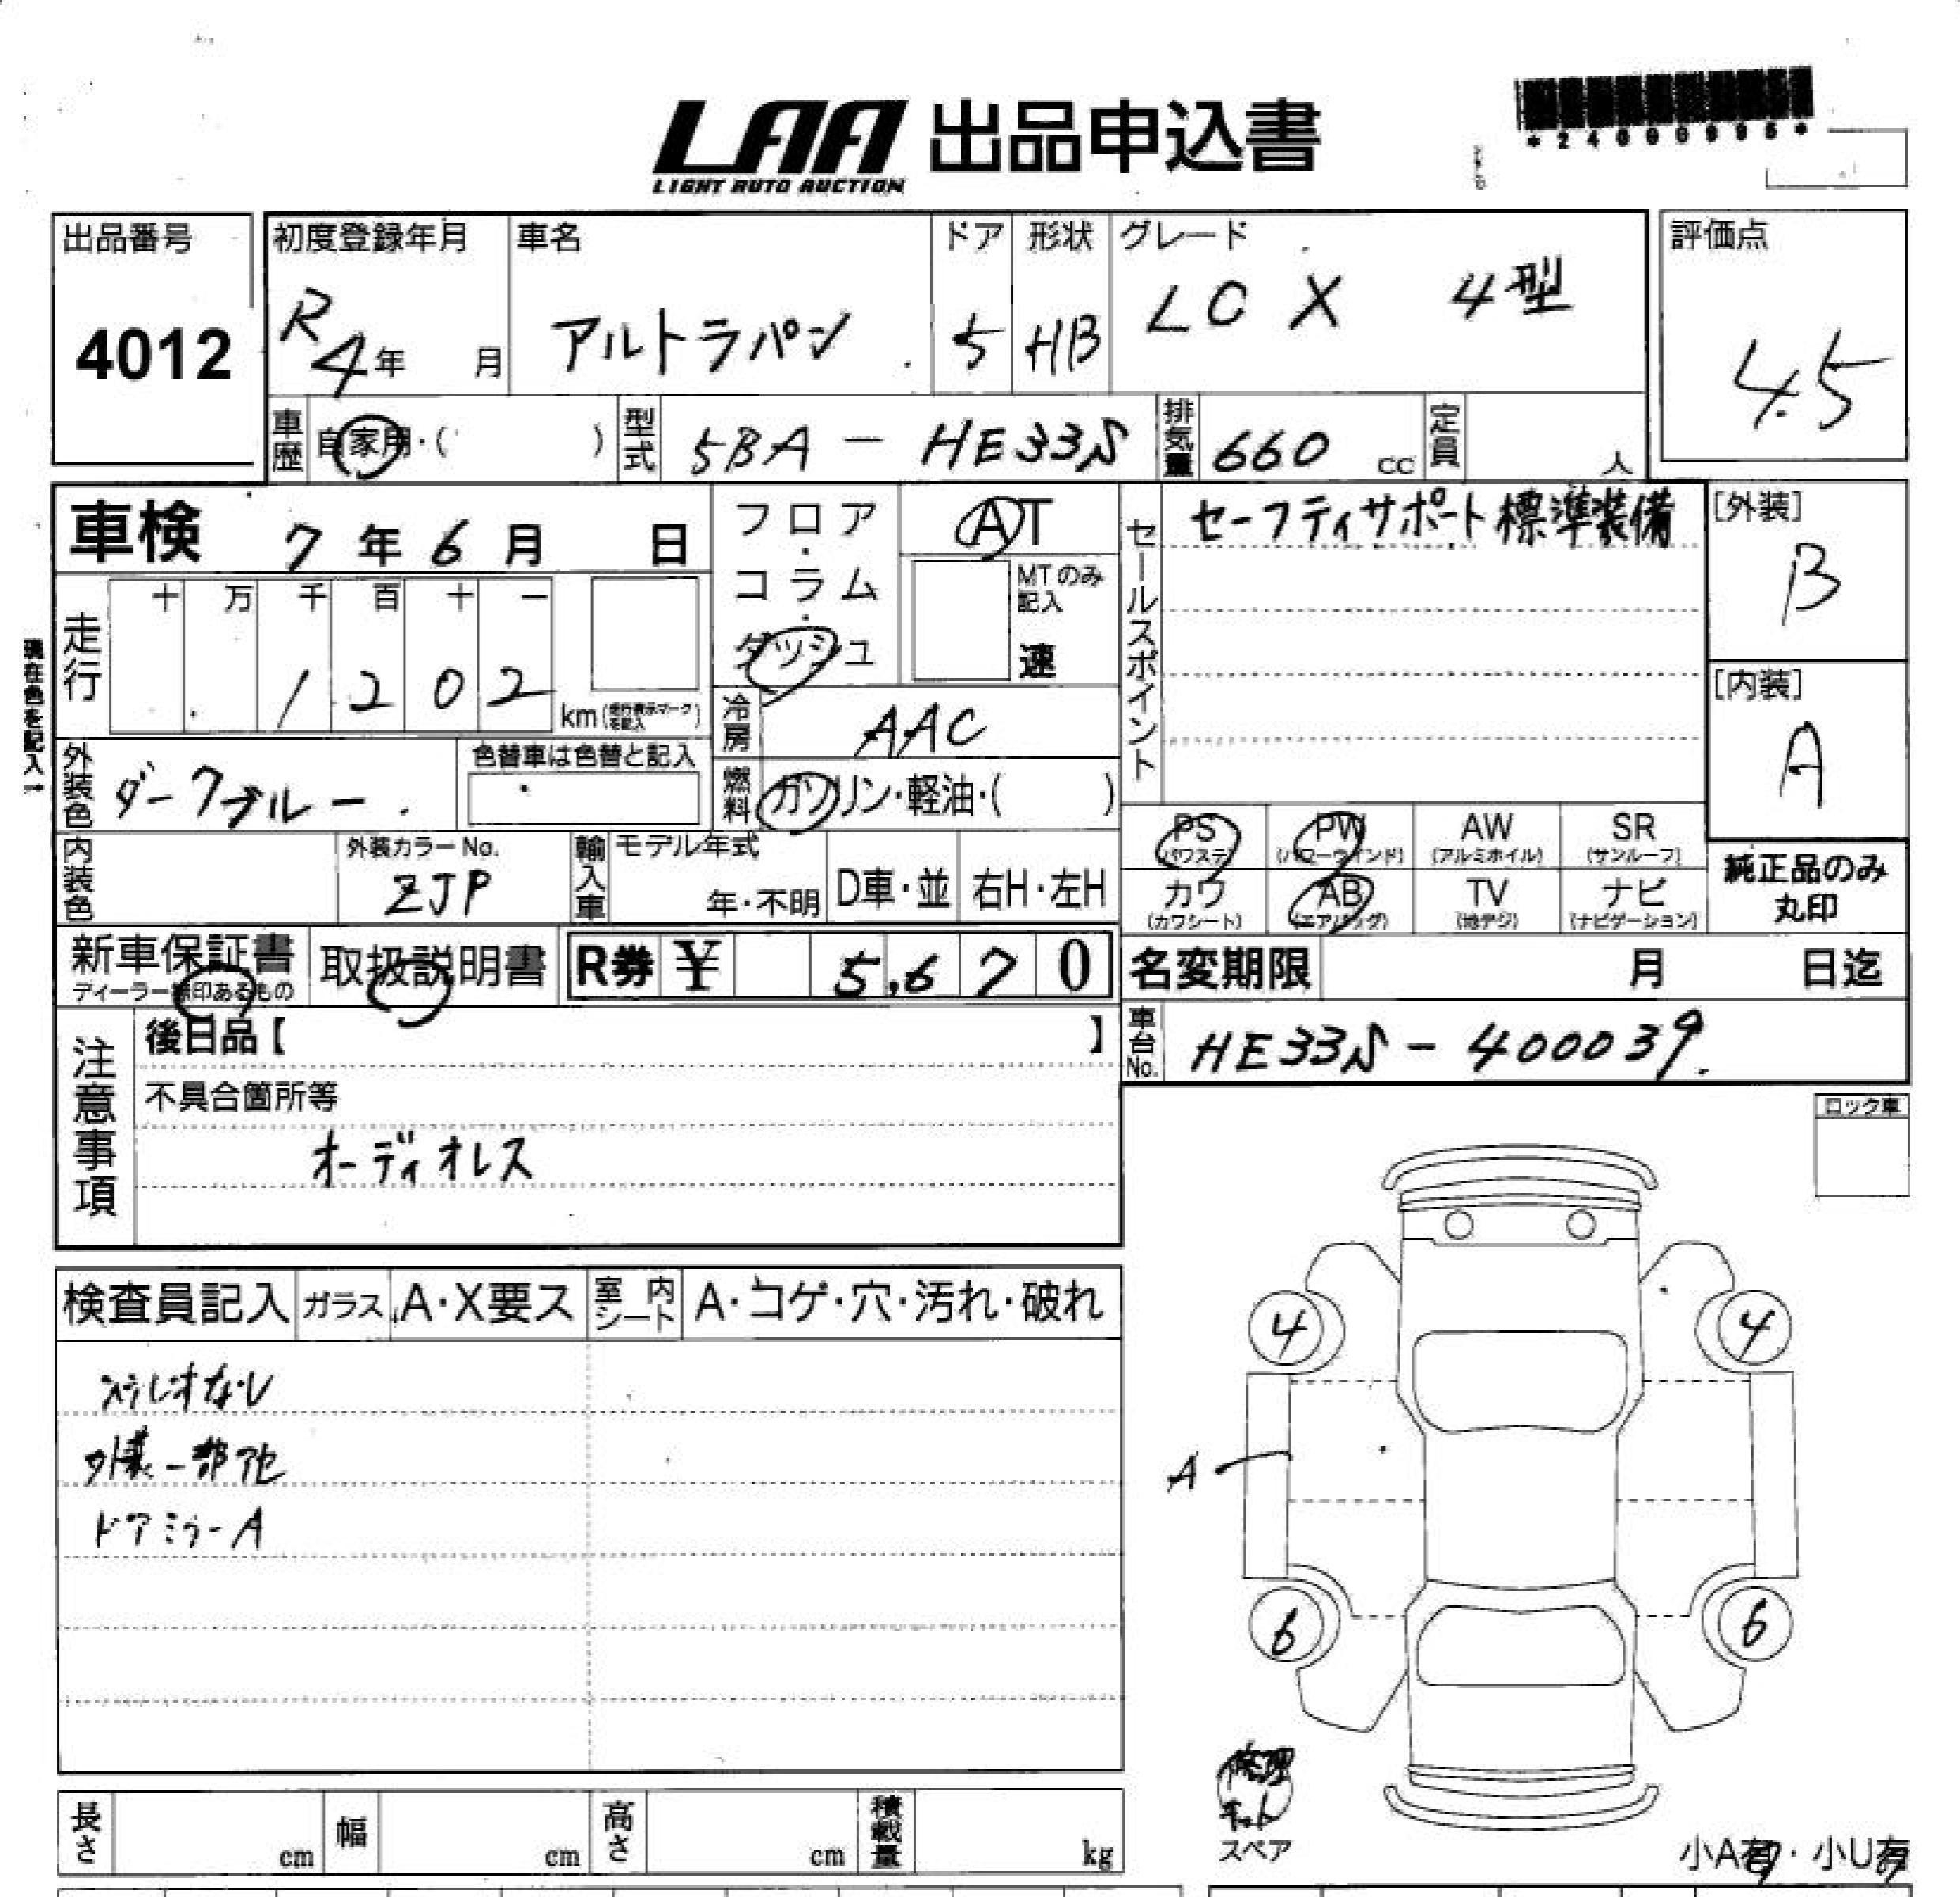 LAA 出品申込書
LIGHT AUTO AUCTION
出品番号
4012
初度登録年月
R4年 月
車名
アルトラパン
ドア
5
形状
HB
グレード
LC X 4型
評価点
4.5
車歴 自家用・( )
型式 5BA - HE33S
排気量 660 cc
定員 人
車検 7年6月 日
フロア・コラム・ダッシュ
AT
MTのみ記入
速
セールスポイント
セーフティサポート標準装備
[外装]
B
[内装]
A
現在色を記入
走行
十 万 千 百 十 一
1 2 0 2 km
冷房 AAC
外装色 ダークブルー
色替車は色替と記入
燃料 ガソリン・軽油・( )
PS (パワステ)
PW (パワーウインド)
AW (アルミホイル)
SR (サンルーフ)
カワ (カワシート)
AB (エアバッグ)
TV (地デジ)
ナビ (ナビゲーション)
純正品のみ
丸印
内装色
外装カラーNo.
ZJP
輸入車
モデル年式
年・不明
D車・並
右H・左H
新車保証書
取扱説明書
R券 ¥ 5,670
名変期限 月 日迄
車台No. HE33S - 400039
注意事項
後日品【 】
不具合箇所等
オーディオレス
ロック車
検査員記入
ガラス
A・X要ス
室内シート
A・コゲ・穴・汚れ・破れ
外装一部アセ
ドアミラーA
4
4
A
6
6
修理
キット
スペア
小A有・小U有
長さ cm
幅 cm
高さ cm
積載量 kg